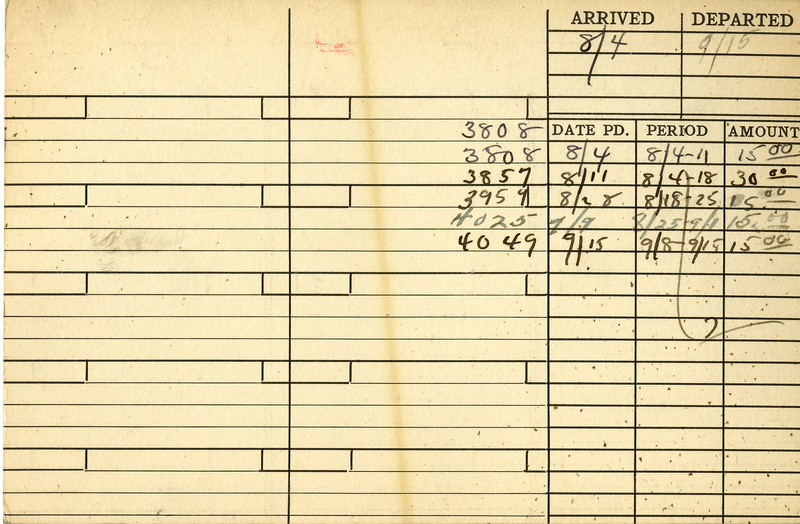 ARRIVED DEPARTED
8/4 9/15
3808 DATE PD. PERIOD AMOUNT
3808 8/4 8/4-11 15 00
3857 8/11 8/4-18 30 00
3959 8/28 8/18-25 15 00
4025 9/9 8/25-9/1 15 00
4049 9/15 9/8-9/15 15 00